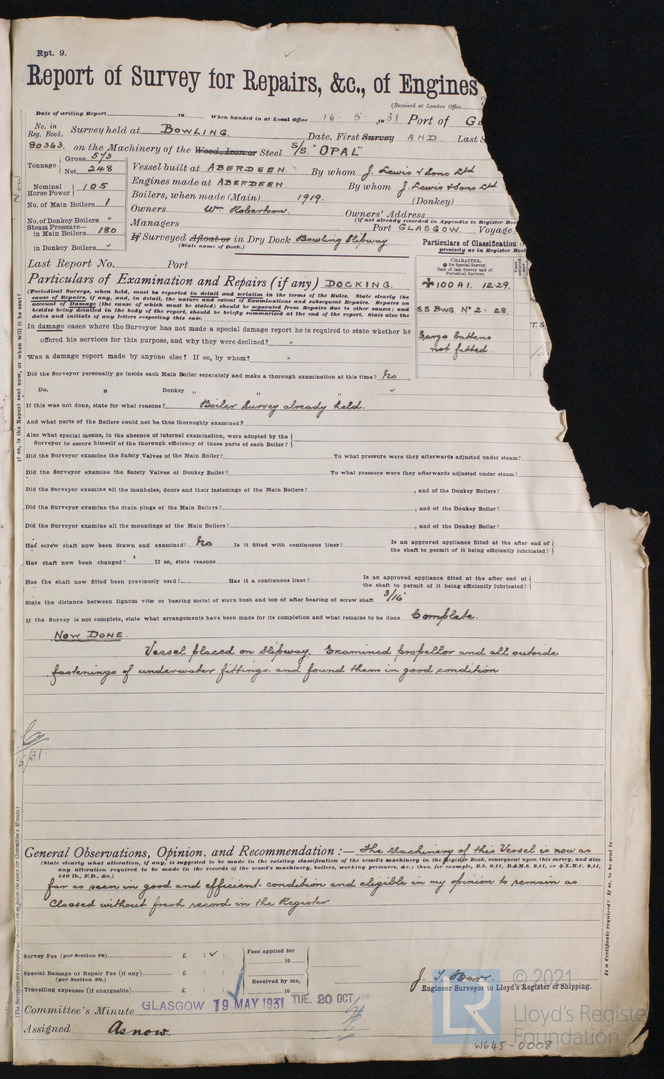 Rpt. 9.
Report of Survey for Repairs, &c., of Engines
(Received at London Office
Date of writing Report 19 When handed in at Local Office 16 5 1931 Port of
No. in Reg. Book. Survey held at BOWLING Date. First Survey AND Last
80363 on the Machinery of the Wood, Iron or Steel S/S "OPAL"
Tonnage Gross 573
Net 248
Vessel built at ABERDEEN By whom J. Lewis & Sons Ltd
Engines made at ABERDEEN By whom J. Lewis & Sons Ltd
Nominal Horse Power 105
Boilers, when made (Main) 1919. (Donkey)
No. of Main Boilers 1
Owners Wm Robertson Owners' Address
(if not already recorded in Appendix to Register Book
No. of Donkey Boilers "
Managers Port GLASGOW Voyage
Steam Pressure— in Main Boilers 180
in Donkey Boilers "
If Surveyed Afloat or in Dry Dock Bowling Slipway
(State name of Dock.)
Particulars of Classification
precisely as in Register Book
Last Report No. Port
CHARACTER,
for Special Survey.
Date of last Survey and of Periodical Surveys.
✠100A1. 12-29.
SS BWG No 2 - 28
T.S.
Cargo battens
not fitted
Particulars of Examination and Repairs (if any) DOCKING.
(Periodical Surveys, when held, must be reported in detail and seriatim in the terms of the Rules. State clearly the
cause of Repairs, if any, and, in detail, the nature and extent of Examinations and subsequent Repairs. Repairs on
account of Damage (the cause of which must be stated) should be separated from Repairs due to other causes; and
besides being detailed in the body of the report, should be briefly summarised at the end of the report. State also the
dates and initials of any letters respecting this case.
In damage cases where the Surveyor has not made a special damage report he is required to state whether he
offered his services for this purpose, and why they were declined? "
Was a damage report made by anyone else? If so, by whom? "
Did the Surveyor personally go inside each Main Boiler separately and make a thorough examination at this time? No
Do. " Donkey " " " "
If this was not done, state for what reasons? Boiler Survey already held.
And what parts of the Boilers could not be thus thoroughly examined?
Also what special means, in the absence of internal examination, were adopted by the
Surveyor to assure himself of the thorough efficiency of those parts of each Boiler?
Did the Surveyor examine the Safety Valves of the Main Boiler? To what pressure were they afterwards adjusted under steam?
Did the Surveyor examine the Safety Valves of Donkey Boiler? To what pressure were they afterwards adjusted under steam?
Did the Surveyor examine all the manholes, doors and their fastenings of the Main Boilers? , and of the Donkey Boilers?
Did the Surveyor examine the drain plugs of the Main Boilers? , and of the Donkey Boiler?
Did the Surveyor examine all the mountings of the Main Boilers? , and of the Donkey Boiler?
Has screw shaft now been drawn and examined? No Is it fitted with continuous liner? Is an approved appliance fitted at the after end of
the shaft to permit of it being efficiently lubricated?
Has shaft now been changed? " If so, state reasons
Has the shaft now fitted been previously used? Has it a continuous liner? Is an approved appliance fitted at the after end of
the shaft to permit of it being efficiently lubricated?
State the distance between lignum vitæ or bearing metal of stern bush and top of after bearing of screw shaft 3/16"
If the Survey is not complete, state what arrangements have been made for its completion and what remains to be done Complete.
NOW DONE.
Vessel placed on slipway. Examined propellor and all outside
fastenings of underwater fittings and found them in good condition
5/31.
General Observations, Opinion, and Recommendation :— The Machinery of this Vessel is now as
(State clearly what alteration, if any, is suggested to be made in the existing classification of the vessel's machinery in the Register Book, consequent upon this survey, and also
any alteration required to be made in the records of the vessel's machinery, boilers, working pressures, &c.: thus, for example, B.S. 9,11, B.&M.S. 9,11, or ✠L.M.C. 9,11,
140 lb., F.D., &c.)
far as seen in good and efficient condition and eligible in my opinion to remain as
Classed without fresh record in the Register
Survey Fee (per Section 29) £ : :
Fees applied for
19
Special Damage or Repair Fee (if any) £ : :
(per Section 29.)
Received by me,
Travelling expenses (if chargeable) £ : :
19
J. S.
Engineer Surveyor to Lloyd's Register of Shipping.
Committee's Minute GLASGOW 19 MAY 1931 TUE. 20 OCT
Assigned As now.
© 2021
Lloyd's Register
Foundation
LR
W645-0008